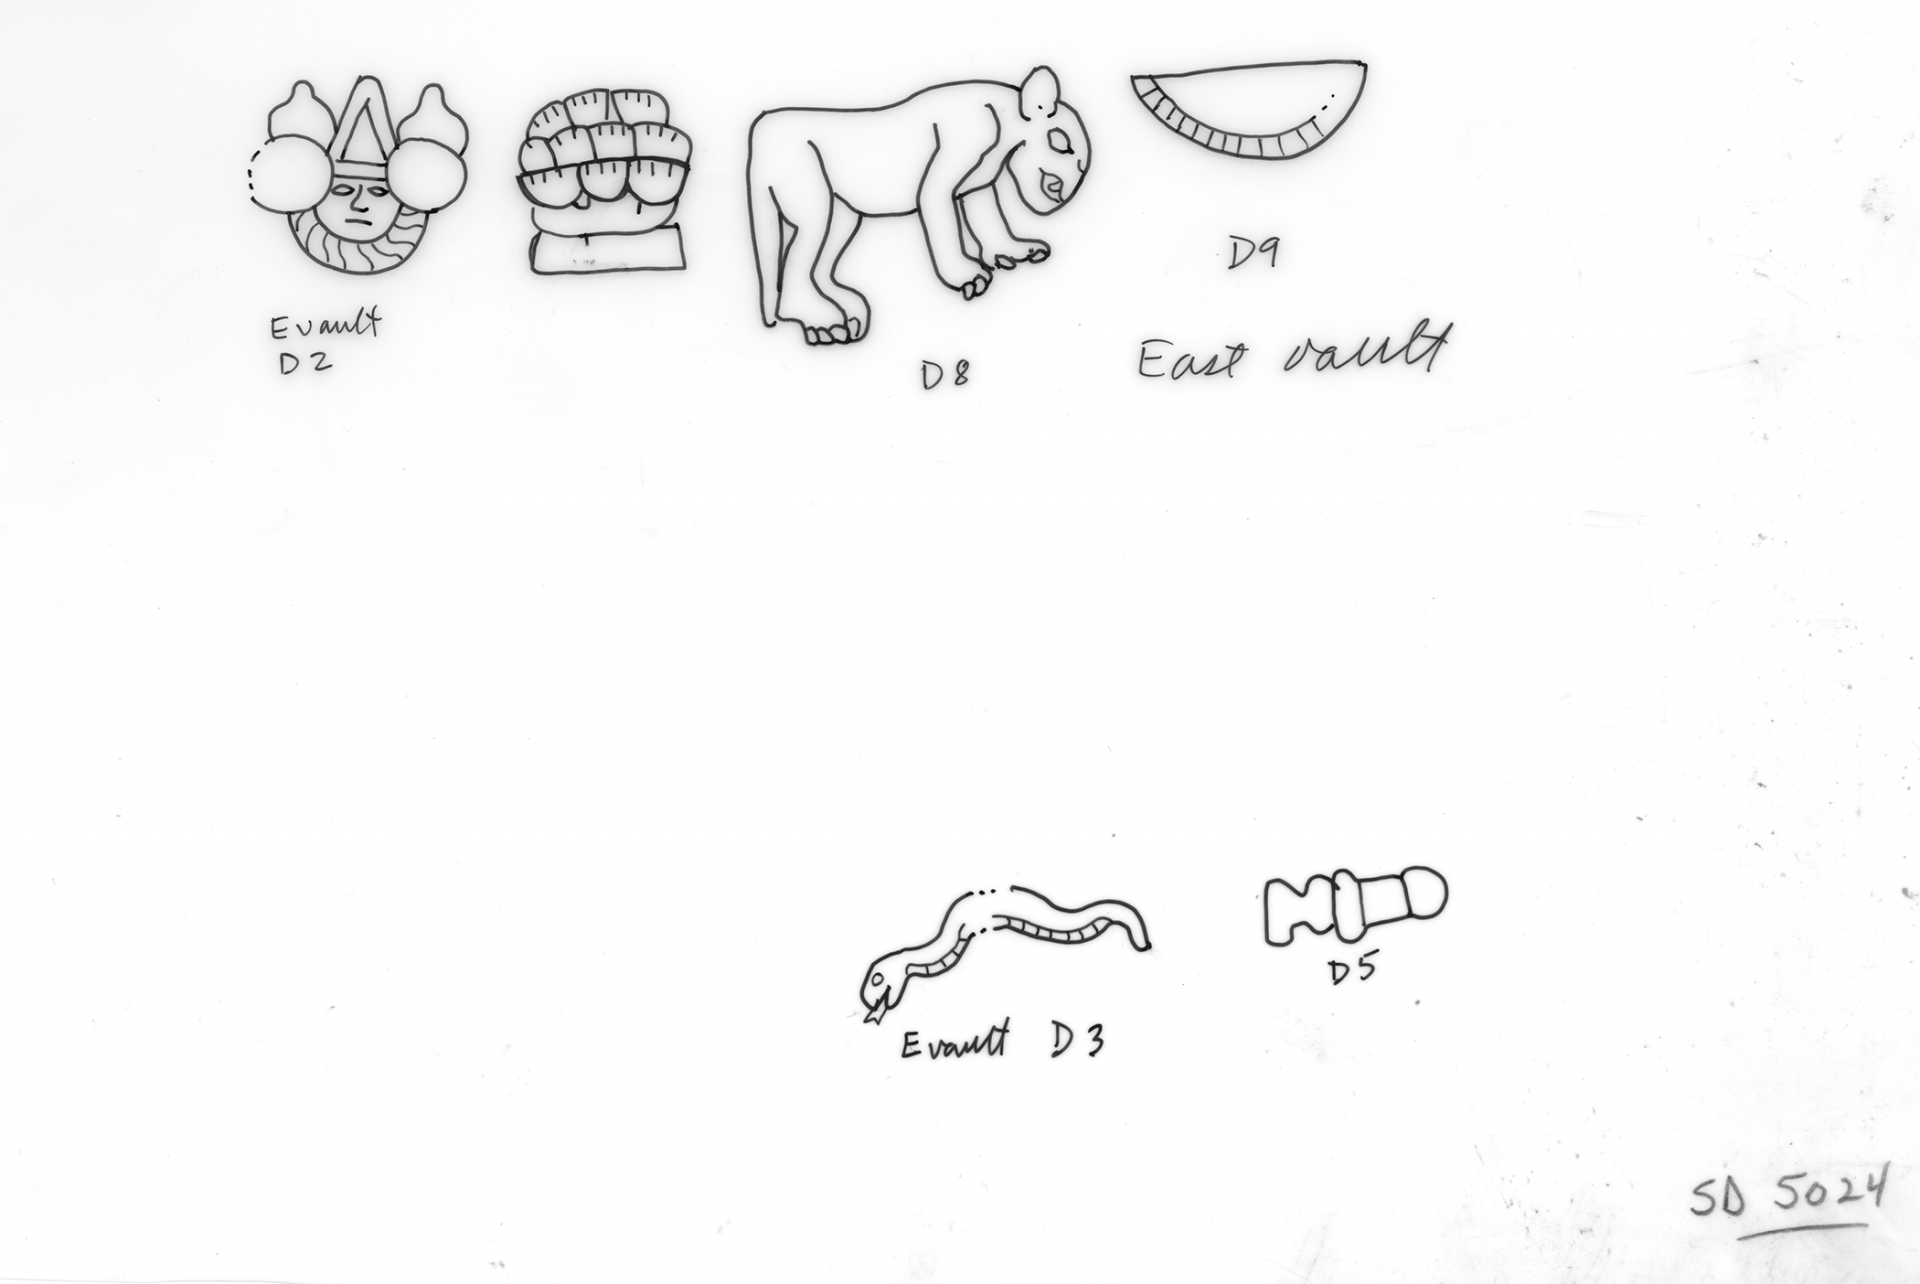 E vault
D2
D8
D9
East vault
E vault D3
D5
SD 5024